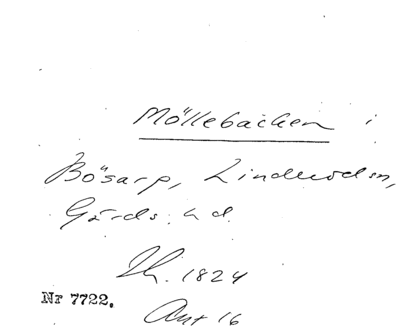 Möllebacken i
Bösarp, Linderödsn,
Gärds hd.
Th. 1824
Nr 7722.
Ant 16